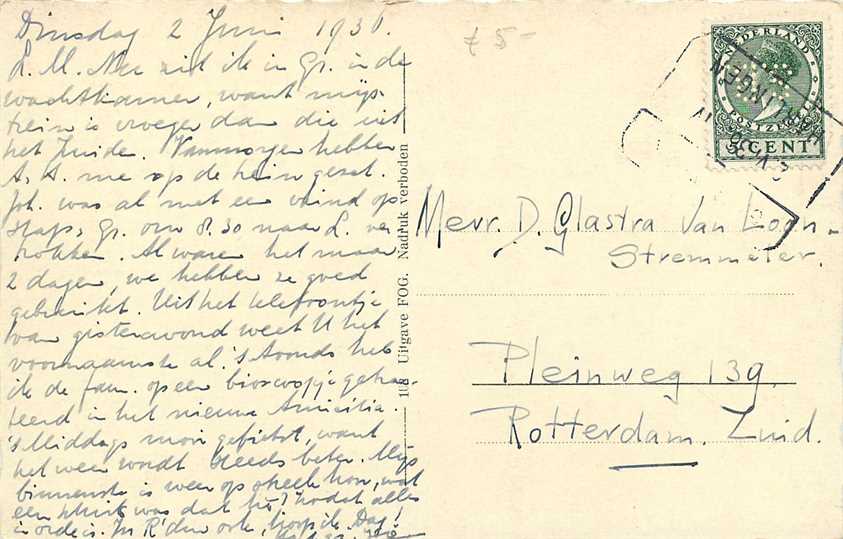 Dinsdag 2 Juni 1936.
L. M. Nu zit ik in Gr. in de
wachtkamer, want mijn
trein is vroeger dan die uit
het Zuide. Vanmorgen hebben
A. A. me op de trein gezet.
Joh. was al met een vriend op
Gr. om 8.30 naar L. ver
trokken. Al waren het maar
2 dagen, we hebben ze goed
gebruikt. Uit het telefoontje
van gisteravond weet U het
voornaamste al. 's Avonds heb
ik de fam. op een bioscoopje getrac
teerd in het nieuwe Amicitia.
's Middags mooi gefietst, want
het weer wordt steeds beter. Mijn
binnenste is weer op streek hoor, wat
een schrik was dat hè? Zodat alles
in orde is. In R'dam ook, hoop ik. Dag!
£ 5-
108 Uitgave FOG. Nadruk verboden
NEDERLAND
POSTZEGEL
CENT
HARLINGEN
Mevr. D. Glastra Van Loon-
Stremmeler.
Pleinweg 139.
Rotterdam. Zuid.